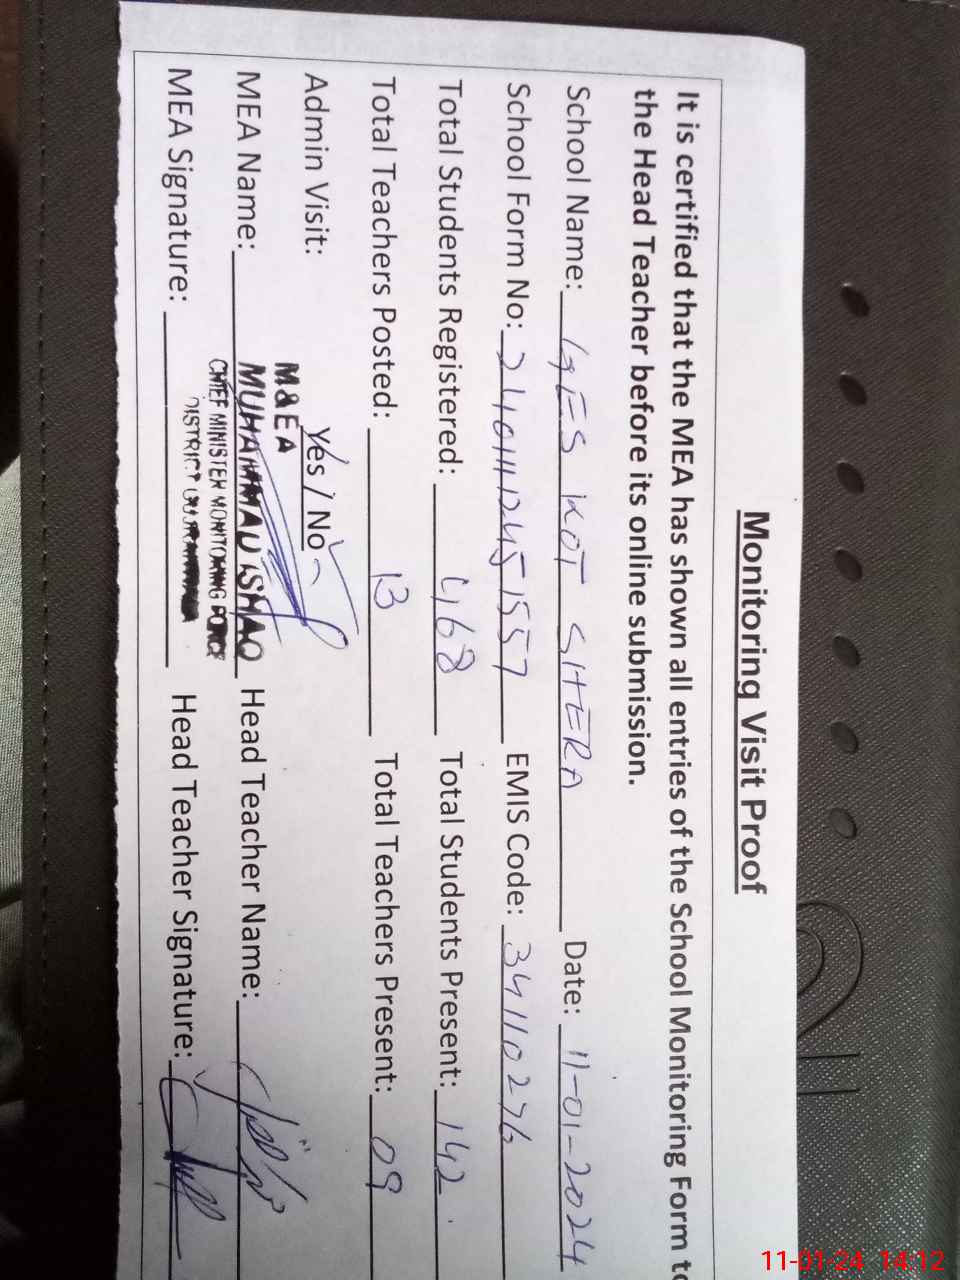 Monitoring Visit Proof
It is certified that the MEA has shown all entries of the School Monitoring Form to
the Head Teacher before its online submission.
School Name: GES KOT SHERA Date: 11-01-2024
School Form No: EMIS Code: 34110276
Total Students Registered: 468 Total Students Present: 142
Total Teachers Posted: 13 Total Teachers Present: 09
Admin Visit: Yes / No
M&EA
MEA Name: MUHAMMAD ISHAQ Head Teacher Name:
CHIEF MINISTER MONITORING FORCE
DISTRICT
MEA Signature: Head Teacher Signature:
11-01-24 14:12